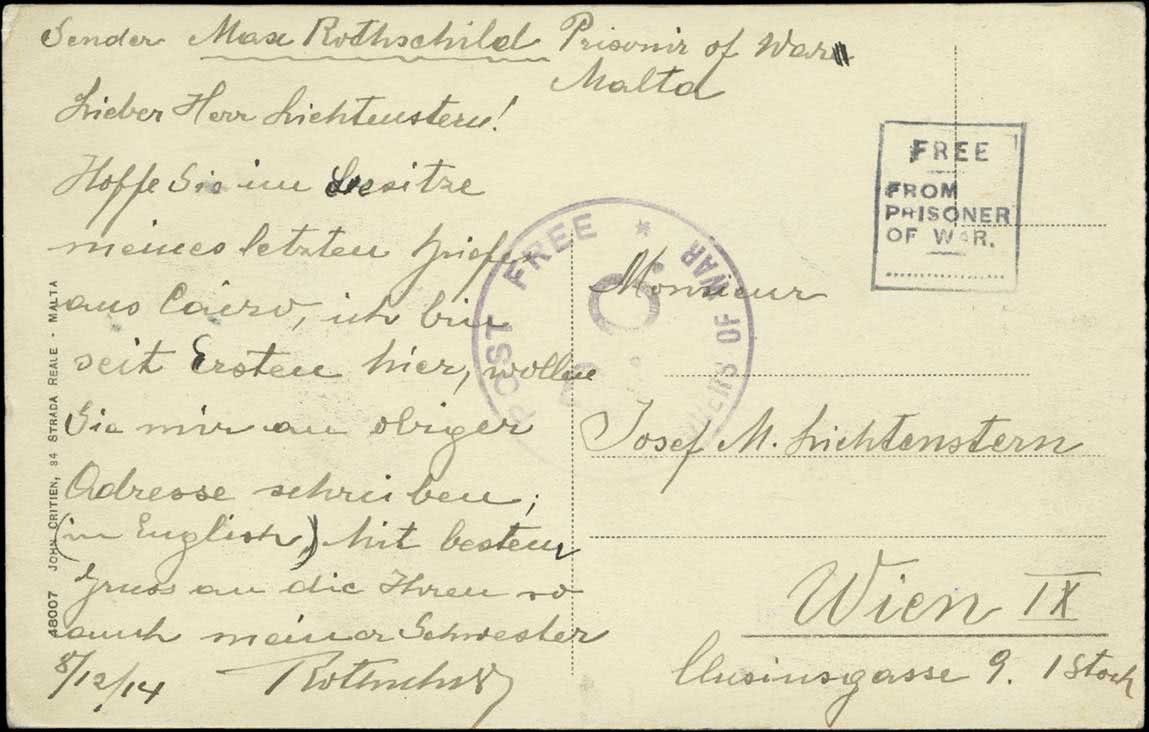 Sender Max Rothschild Prisonir of War
Malta
Lieber Herr Lichtenstern!
Hoffe Sie im Besitze
meines letzten Briefes
aus Cairo, ich bin
seit Ersten hier, wollen
Sie mir an obiger
Adresse schreiben;
(in English) Mit besten
Gruss an die Ihren so
auch meiner Schwester
8/12/14 Rothschild
48007 JOHN CRITIEN, 34 STRADA REALE - MALTA
POST FREE * OF WAR
FREE
FROM
PRISONER
OF WAR.
Monsieur
Josef M. Lichtenstern
Wien IX
Clusiusgasse 9. 1 Stock